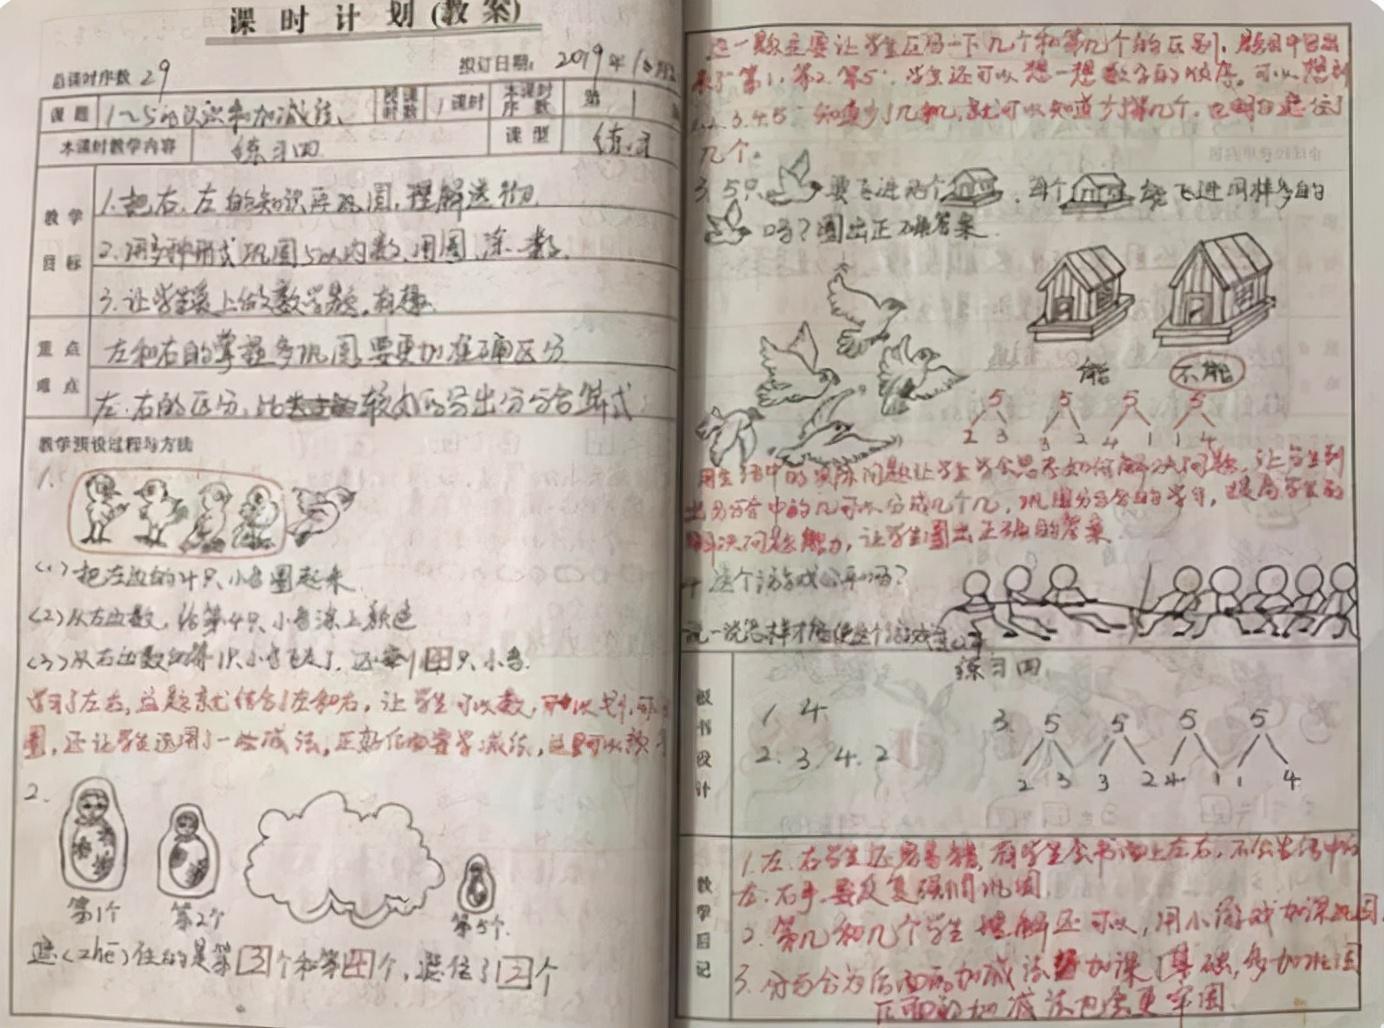 课时计划(教案)
总课时序数 29
拟订日期: 2019年10月
课题 1~5的认识和加减法 授课时数 1课时 本课时序数 第1
本课时教学内容 练习四 课型 练习
教学目标
1.把右、左的知识再巩固,理解透彻
2.用多种形式巩固5以内数、用圈、涂、数
3.让学生爱上做数学题,有趣
重点 左和右的掌握多巩固要更加准确区分
难点 左、右的区分,比较大小写出分与合算式
教学预设过程与方法
1.
(1)把左边的4只小鸟圈起来
(2)从左边数,给第4只小鸟涂上颜色
(3)从右边数的第1只小鸟飞走了,还剩4只小鸟.
学习了左右,这题就结合了左和右,让学生可以数,可以划,可以
圈,还让学生运用了一些减法,正好后面要学减法,这里可以预
2.
第1个 第2个 第5个
遮(zhē)住的是第3个和第4个,遮住了2个
这一题主要让学生区分一下几个和第几个的区别,题目中给出
来了第1,第2,第5,学生还可以想一想数字的顺序。可以想到
1.2.3.4.5 知道少了几和几,就可以知道少了第几个,也明白遮住了
几个。
3.5只 要飞进两个 ,每个 能飞进同样多的
吗?圈出正确答案.
能 不能
5 5 5 5
2 3 3 2 4 1 1 4
用生活中的实际问题让学生学会思考如何解决问题,让学生列
出分与合中的几可以分成几个几,巩固分与合的学习,提高学生的
解决问题能力,让学生圈出正确的答案
4 这个游戏公平吗?
说一说怎样才能使这个游戏公平
板书设计
练习四
1. 4
2. 3. 4. 2
3. 5 5 5 5
2 3 3 2 4 1 1 4
教学后记
1.左、右学生还容易错,有学生会书面上左右,不会生活中的
左、右手要反复强调巩固.
2.第几和几个学生理解还可以,用小游戏加深巩固
3.分与合为后面的加减法加深基础,多加巩固
后面的加减法也会更牢固.